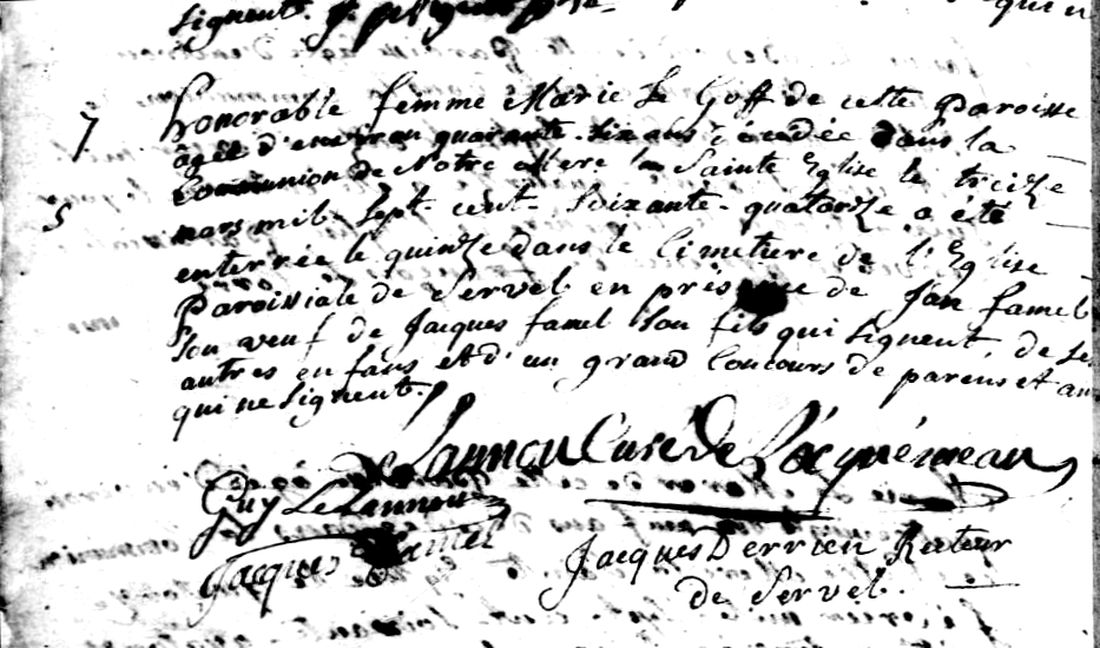 signent.
7 honorable femme Marie Le Goff de cette Paroisse
âgée d'environ quarante-six ans décédée dans la
Communion de Notre Mere la Sainte Eglise le treize
5 mars mil sept cent soixante-quatorze a été
enterrée le quinze dans le Cimetiere de l'Eglise
Paroissiale de Servel en présence de Jan famel
son veuf de Jacques famel son fils qui signent, de ses
autres enfans et d'un grand Concours de parens et
qui ne signent.
Le Lannou Curé De Locquémeau
Guy Le Lannou
Jacques famel
Jacques Derrien Recteur
de Servel.